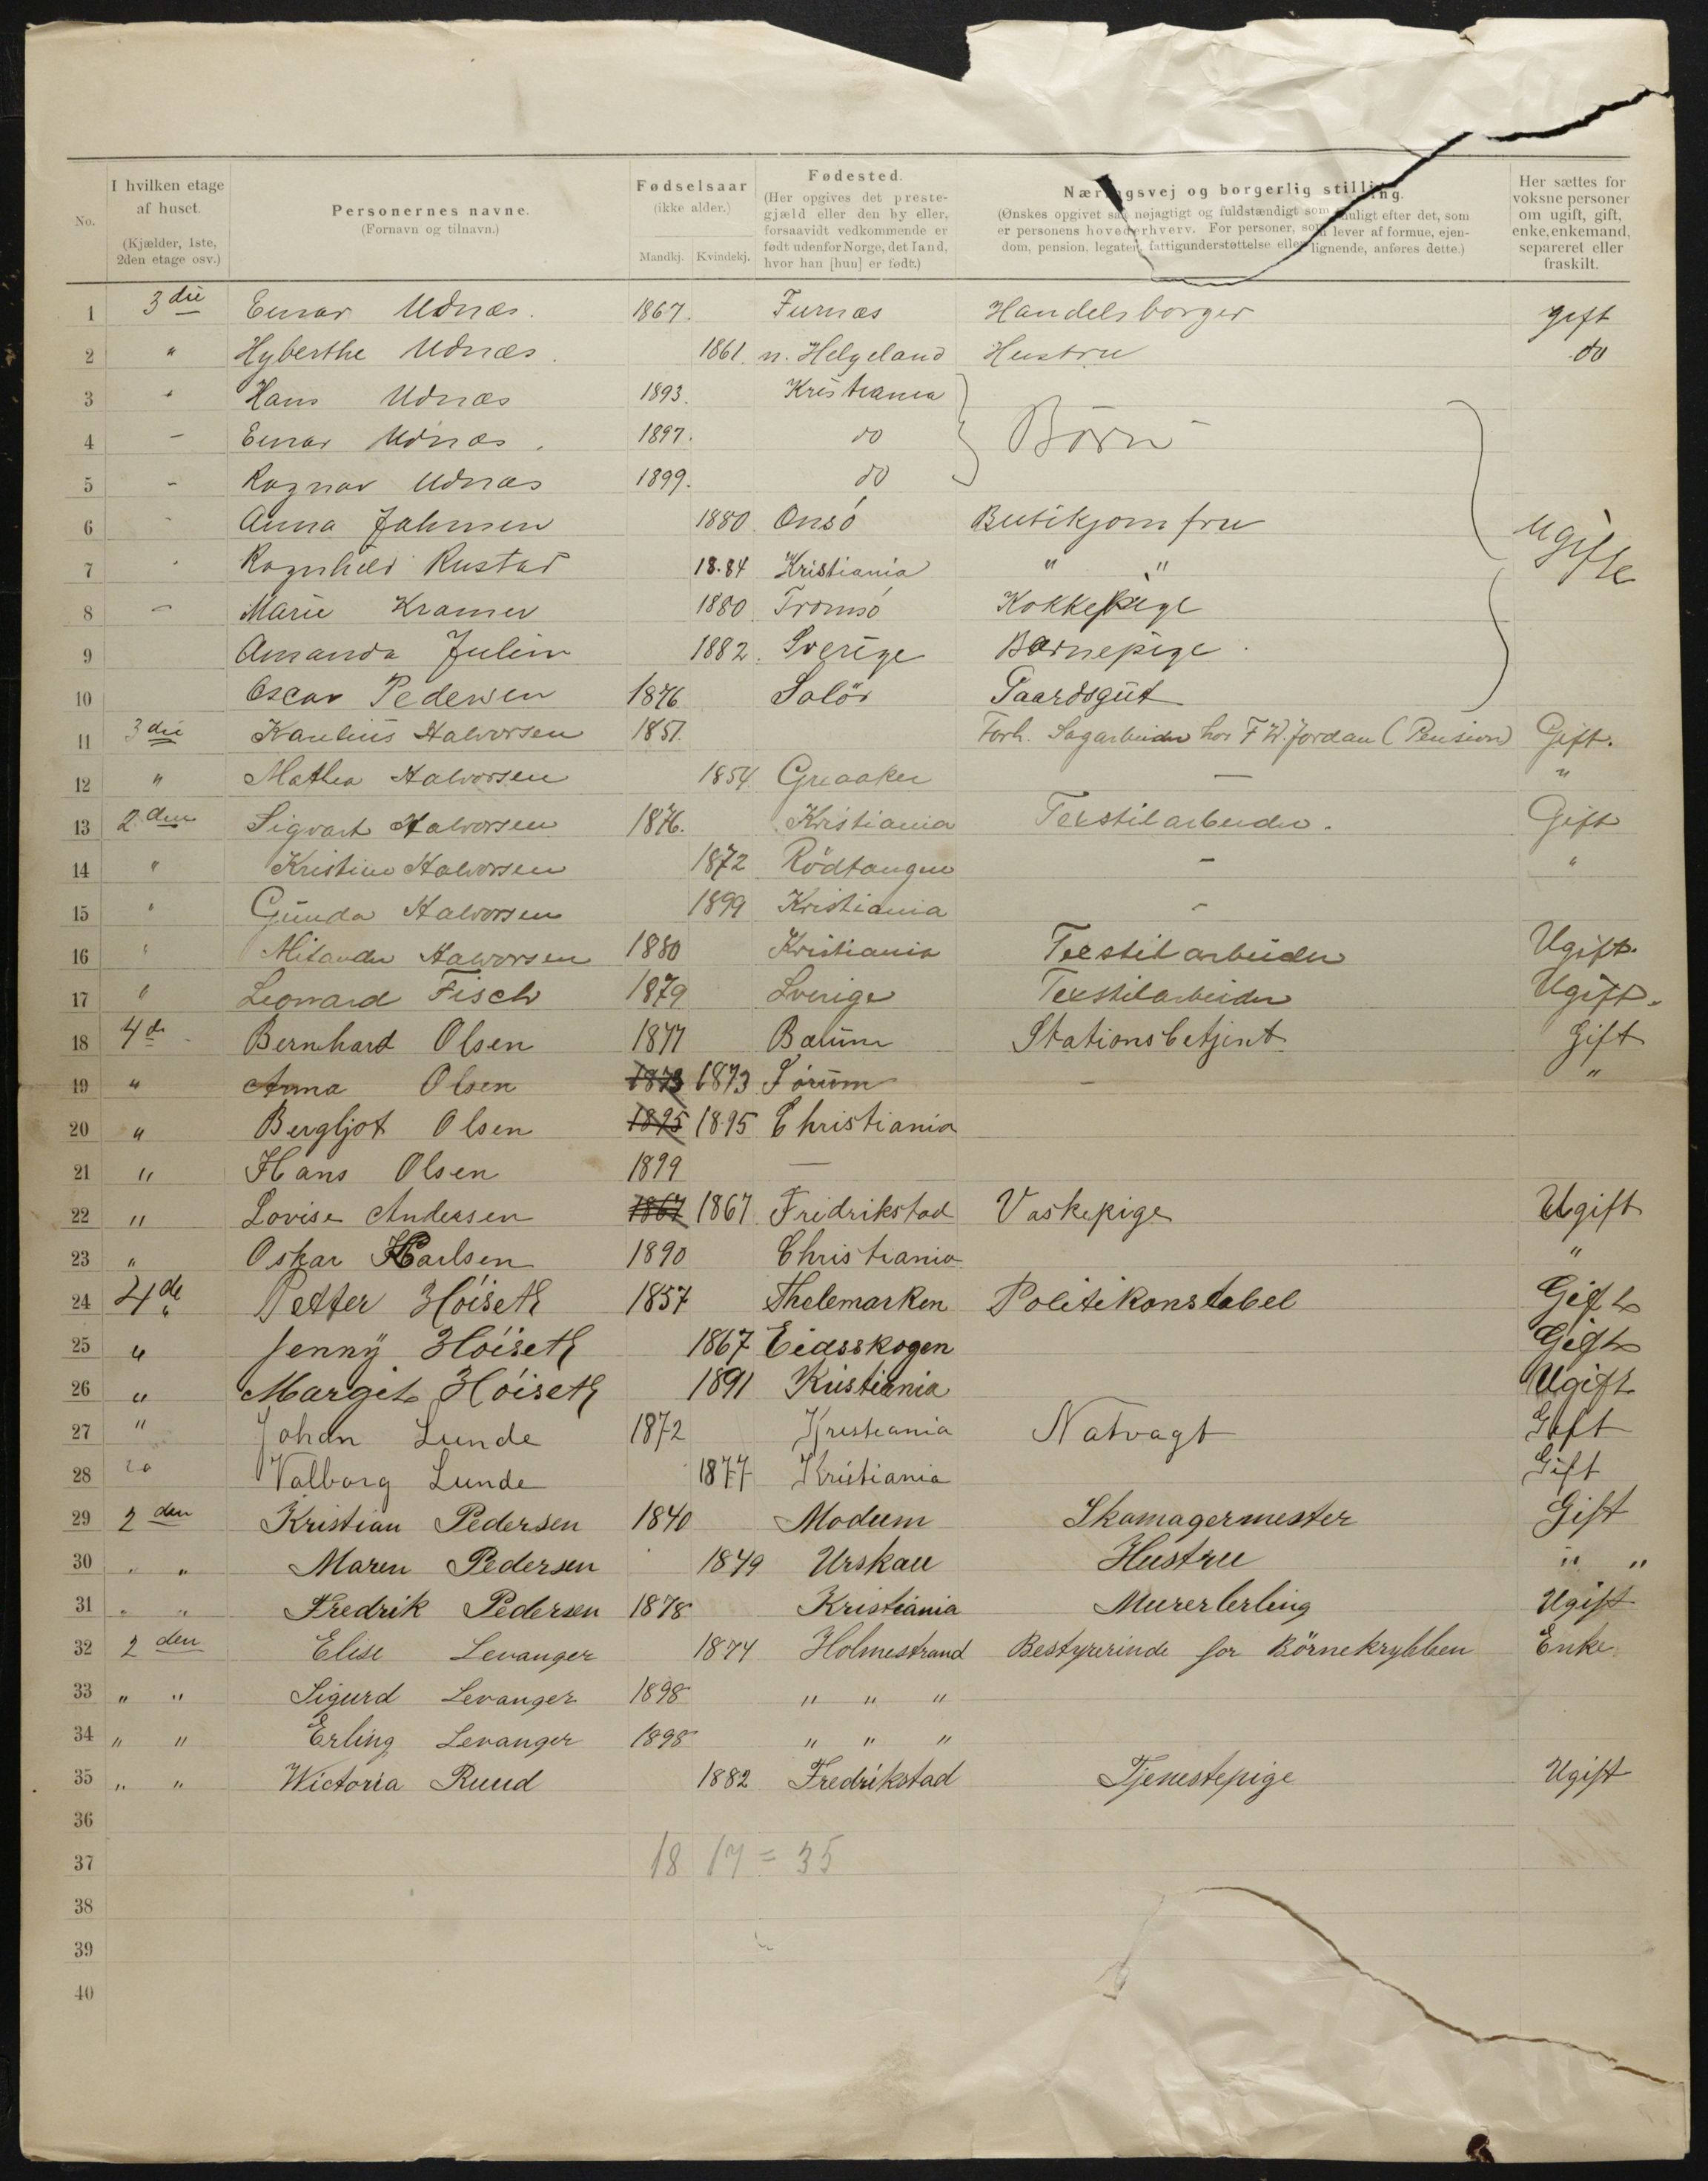 No.
I hvilken etage af huset. (Kjælder, 1ste, 2den etage osv.)
Personernes navne. (Fornavn og tilnavn.)
Fødselsaar (ikke alder.) Mandkj. Kvindekj.
Fødested. (Her opgives det prestegjæld eller den by eller, forsaavidt vedkommende er født udenfor Norge, det land, hvor han [hun] er født.)
Næringsvej og borgerlig stilling. (Ønskes opgivet saa nøjagtigt og fuldstændigt som muligt efter det, som er personens hovederhverv. For personer, som lever af formue, ejendom, pension, legater, fattigunderstøttelse eller lignende, anføres dette.)
Her sættes for voksne personer om ugift, gift, enke, enkemand, separeret eller fraskilt.
1 3die Einar Udnæs. 1867. Furnæs Handelsborger gift
2 " Hyberthe Udnæs. 1861. n. Helgeland Hustru do
3 " Hans Udnæs 1893. Kristiania
4 – Einar Udnæs. 1897. do Børn
5 – Ragnar Udnæs 1899. do
6 - Anna 1880 Onsø Butikjomfru ugifte
7 - Ragnhild Rustad 18.84 Kristiania " "
8 – Marie Kramer 1880 Tromsø Kokkepige
9 Amanda Julin 1882. Sverige Barnepige.
10 Oscar Pedersen 1876 Solör Gaardsgut
11 3die Halvorsen 1851. Forh. Sagarbeider hos F W. Jordan (Pension) Gift.
12 " Mathea Halvorsen 1854 Greaaker — "
13 2den Sigvart Halvorsen 1876. Kristiania Textilarbeider. Gift
14 " Kristine Halvorsen 1872 Rödtangen - "
15 " Gunda Halvorsen 1899 Kristiania -
16 " Halvorsen 1880 Kristiania Textilarbeider Ugift.
17 " Leonard Fisch 1879 Sverige Textilarbeider Ugift.
18 4de Bernhard Olsen 1877 Bærum Stationsbetjent Gift
19 " Anna Olsen 1873 1873 Sørum – "
20 " Bergljot Olsen 1895 1895 Christiania
21 " Hans Olsen 1899 —
22 " Lovise Andersen 1867 1867 Fridrikstad Vaskepige Ugift
23 " Oskar Karlsen 1890 Christiania "
24 4de " Petter Höiseth 1857 Thelemarken Politikonstabel Gift
25 " Jenny Höiseth 1867 Eidsskogen Gift
26 " Margit Höiseth 1891 Kristiania Ugift
27 " Johan Lunde 1872 Kristiania Natvagt Gift
28 Valborg Lunde 1877 Kristiania Gift
29 2den Kristian Pedersen 1840 Modum Skomagermester Gift
30 " " Maren Pedersen 1849 Urskau Hustru " "
31 " " Fredrik Pedersen 1878 Kristiania Murerlerling Ugift
32 2den Elise Levanger 1874 Holmestrand Bestyrerinde for Börnekrybben Enke
33 " " Sigurd Levanger 1898 " " "
34 " " Erling Levanger 1898 " " "
35 " " Wictoria Ruud 1882 Fredrikstad Tjenestepige Ugift
36
37 18 17 = 35
38
39
40